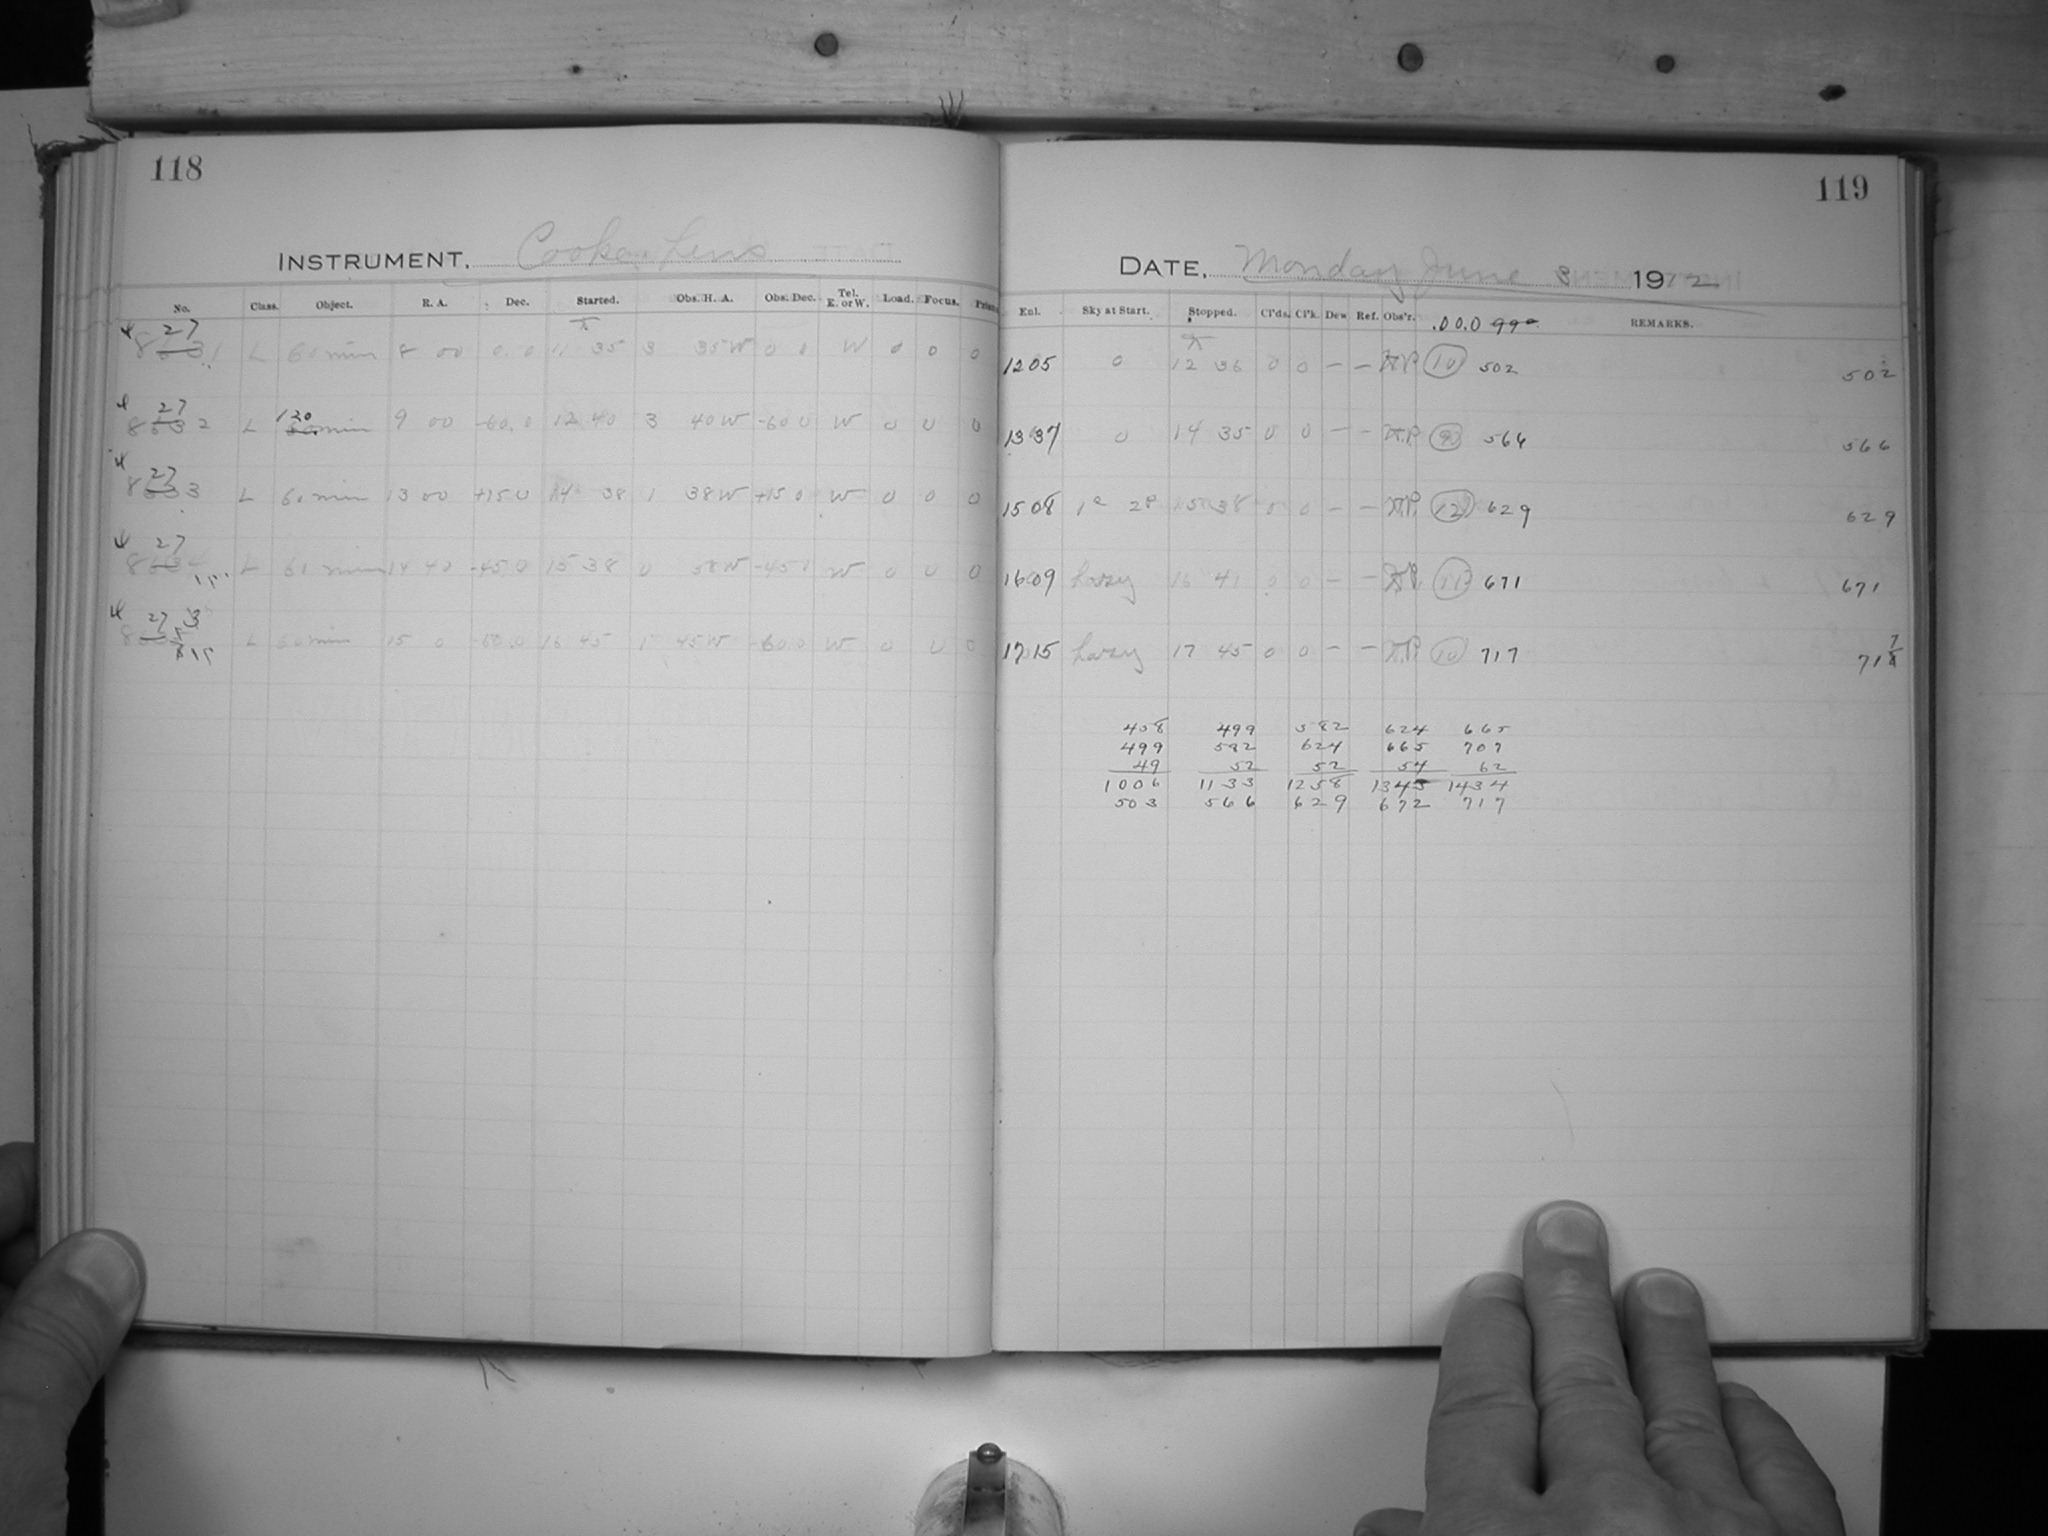 118
INSTRUMENT, Cooke Lens
No. Class. Object. R. A. Dec. Started. Obs. H. A. Obs. Dec. Tel. E. or W. Load. Focus.
27
L 60 min 8 00 0.0 11 35 3 35 W 0 0 W 0 0 0
27
L 120 min 9 00 -60.0 12 40 3 40 W -60 0 W 0 0 0
27
L 60 min 13 00 +15.0 14 38 1 38 W +15 0 W 0 0 0
27
L 14 40 -45.0 15 38 0 58 W -45 W 0 0 0
27
L 60 min 15 0 -60.0 16 45 1 45 W -60.0 W 0 0 0
119
DATE, Monday June 3 1912
Enl. Sky at Start. Stopped. Cl'ds. Cl'k. Dew Ref. Obs'r. .00.0 REMARKS.
12 05 0 12 36 0 0 - - 10 502 502
13 37 0 14 35 0 0 - - 9 566 566
15 08 15 38 0 0 - - 12 629 629
16 09 hazy 16 41 0 0 - - 11 671 671
17 15 hazy 17 45 0 0 - - 10 717 717
458 499 582 624 665
499 582 624 665 707
49 52 52 54 62
1006 1133 1258 1343 1434
503 566 629 672 717